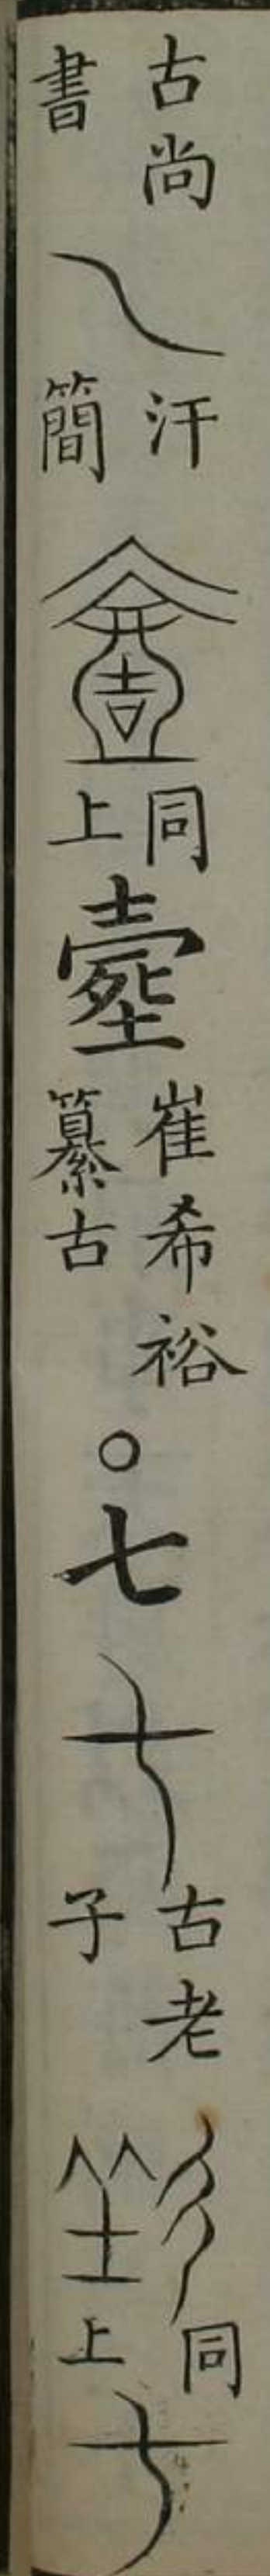 古尚書
汗簡
同上
崔希裕纂古
○七
古老子
同上